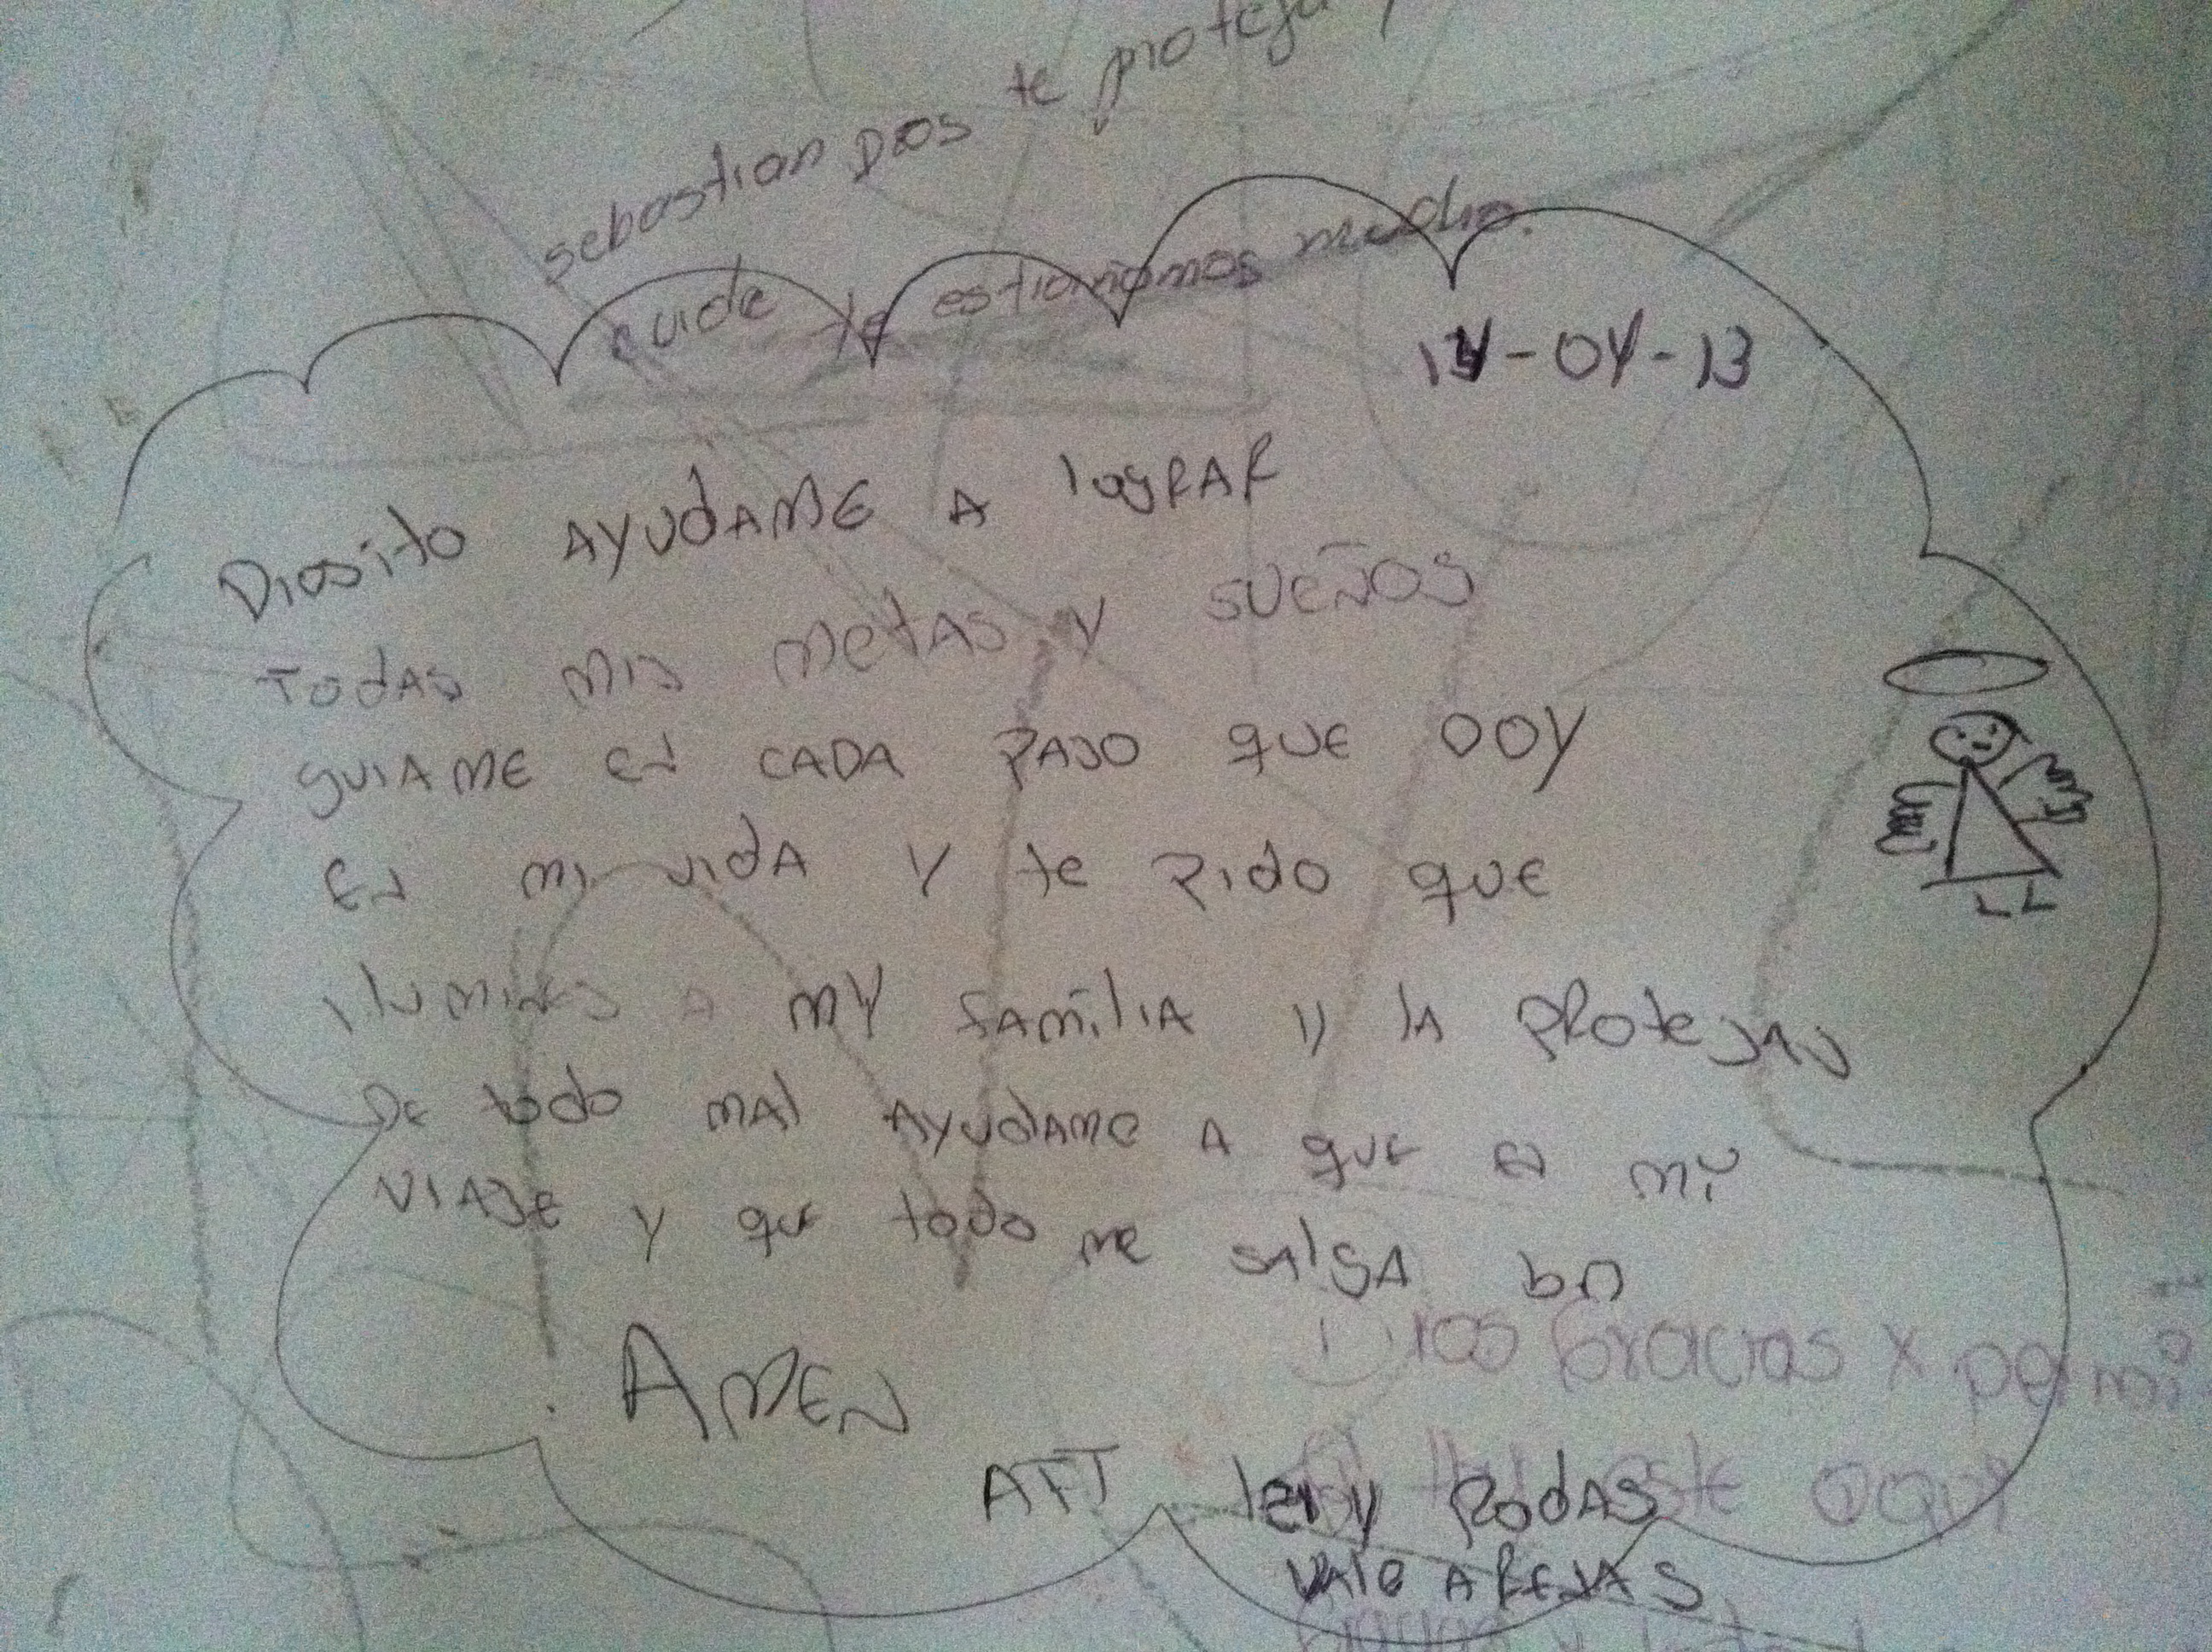 sebastian Dios te proteja y
cuide te estimamos mucho.
14-04-13
Diosito AyudAME A logRAR
TodAS mis MetAS y SUEÑOS
guiAME EN CADA PASO que DOY
EN mi vidA Y te Pido que
ilumines A MY FAmiliA y lA PROteJAS
De todo mAl AyudAme A que en mi
VIAJE Y que todo me SAlgA bn
Dios Gracias x permi
AMEN
aqui
ATT leny RodAS
VAle AREJAS